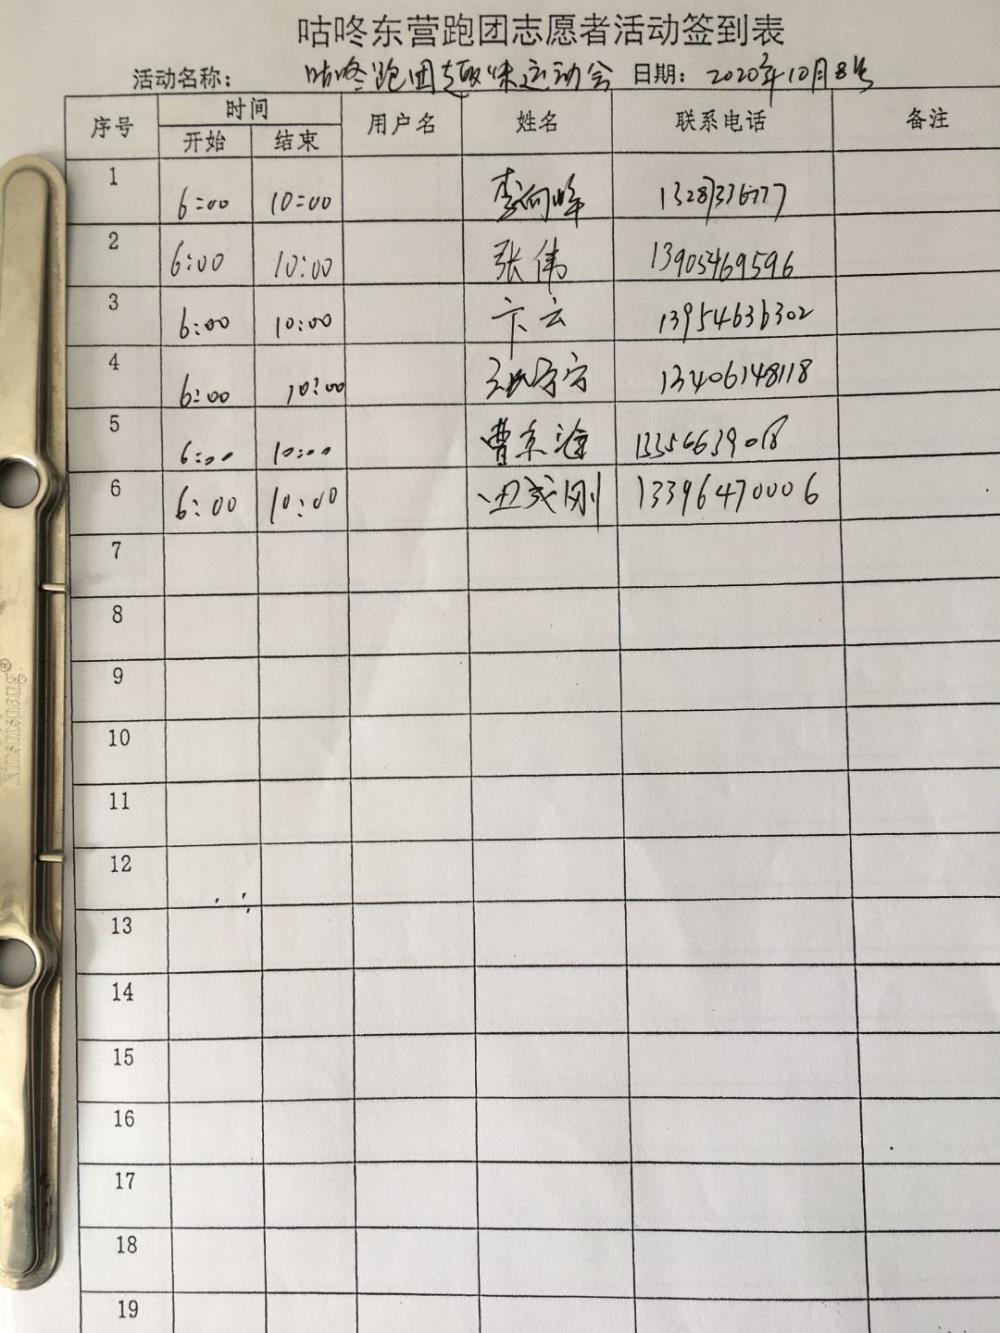 咕咚东营跑团志愿者活动签到表
活动名称: 咕咚跑团趣味运动会 日期: 2020年10月8号
序号 时间 用户名 姓名 联系电话 备注
开始 结束
1 6:00 10:00 李向峰 13287376777
2 6:00 10:00 张伟 13905469596
3 6:00 10:00 卞云 13954636302
4 6:00 10:00 13406148118
5 6:00 10:00 曹 13356639018
6 6:00 10:00 成刚 13396470006
7
8
9
10
11
12
13
14
15
16
17
18
19
Xinshisheng®